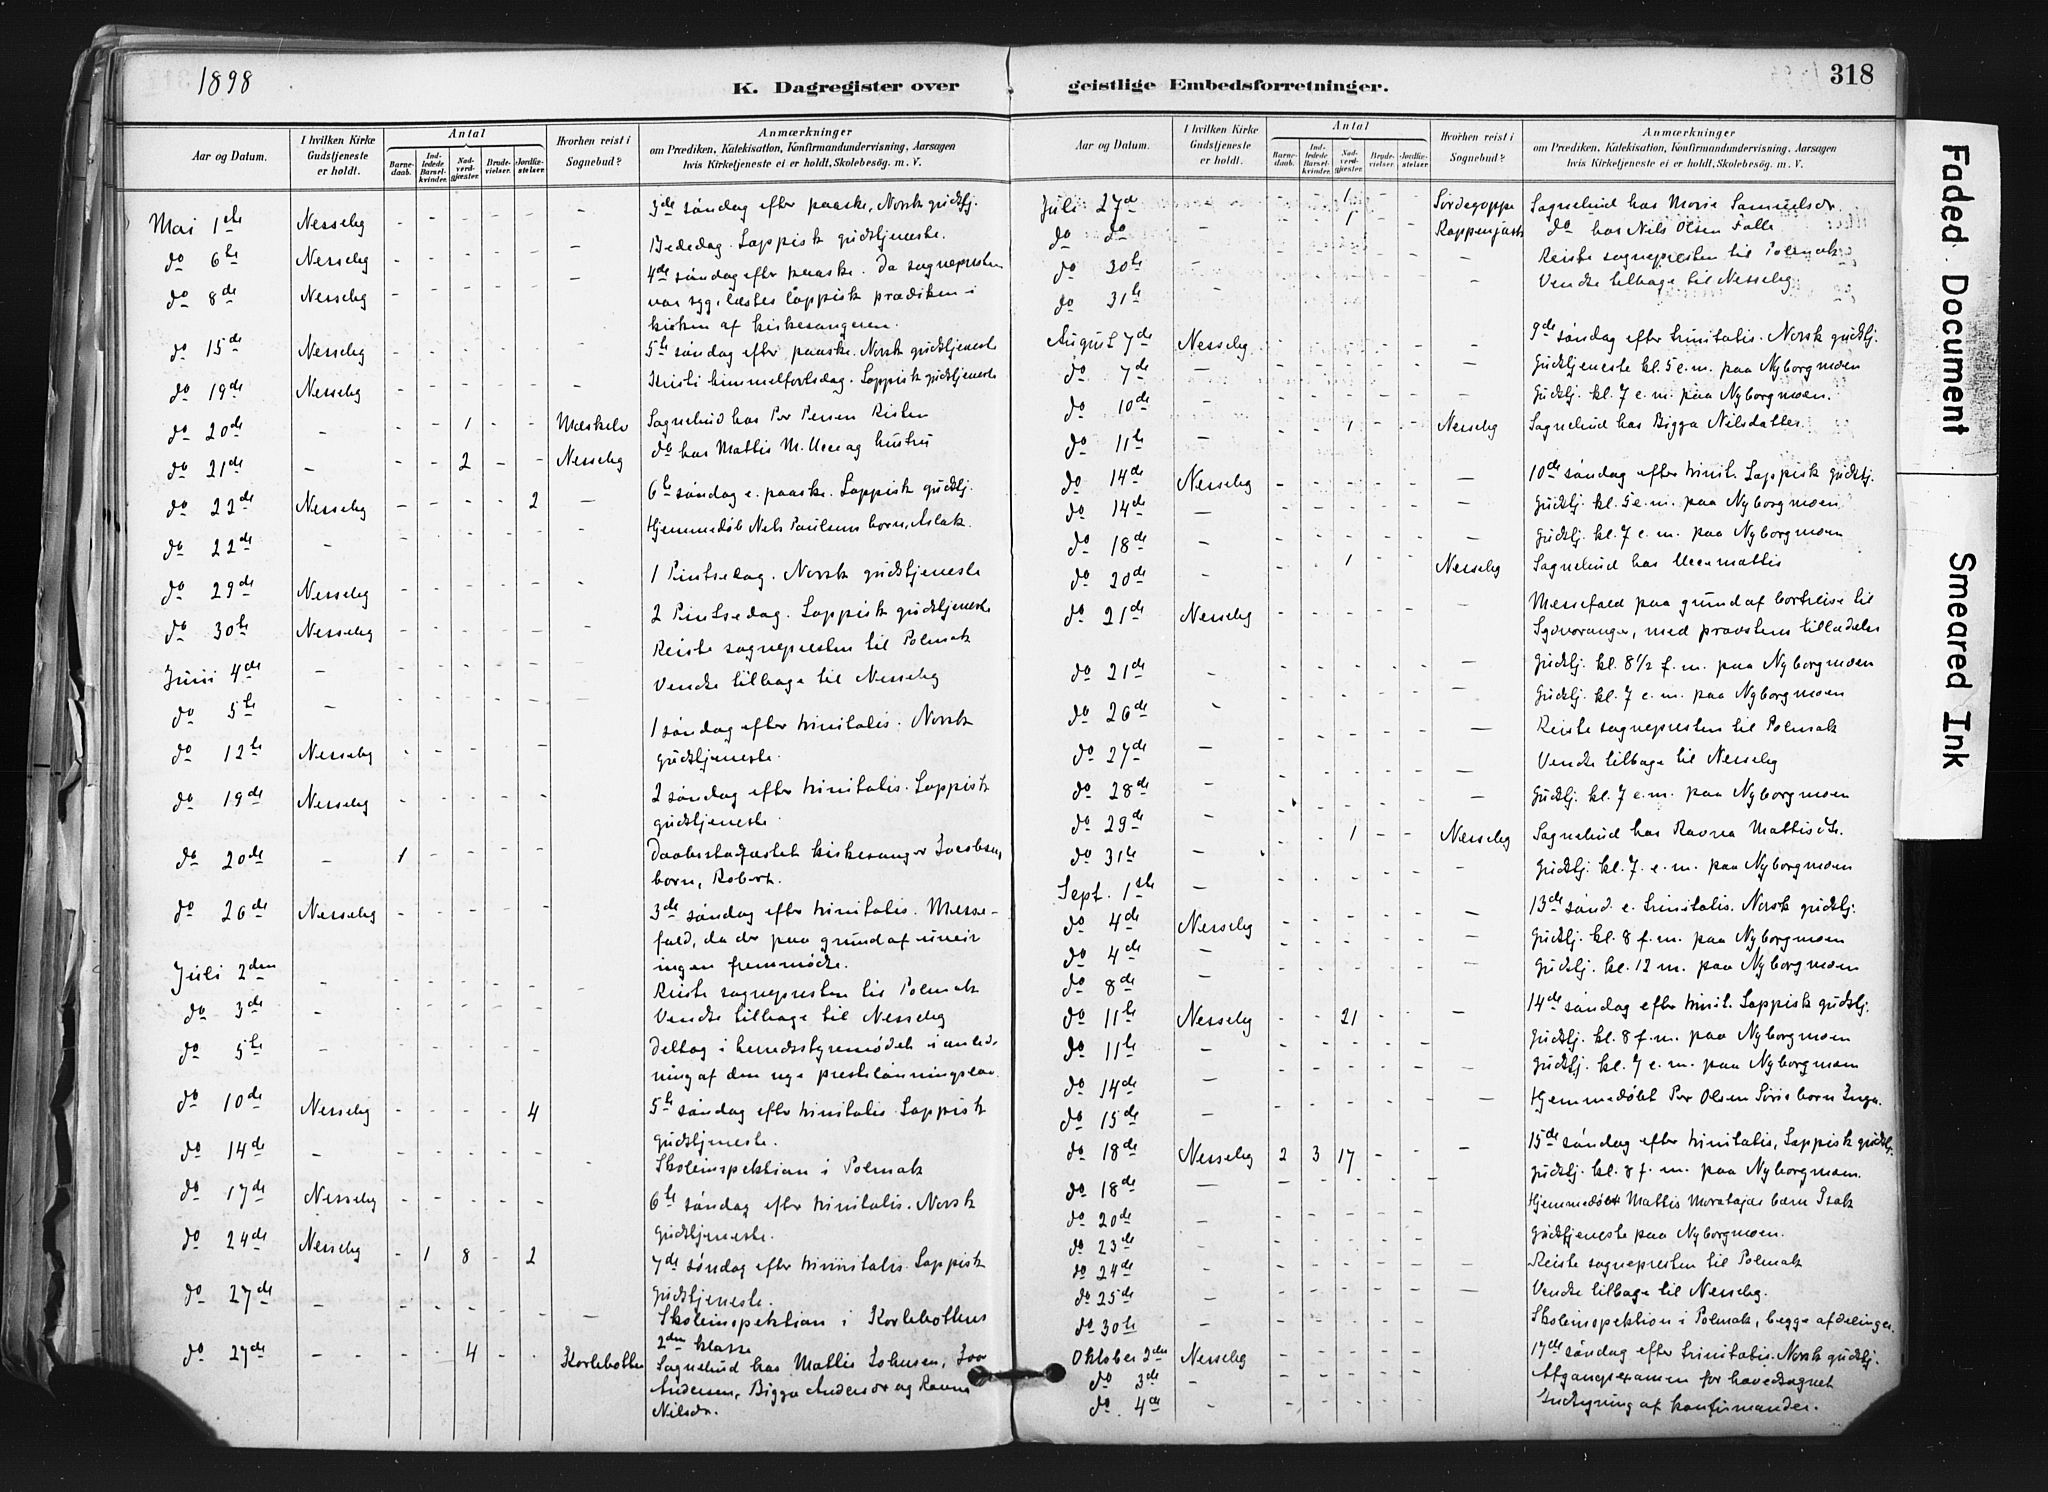 1898
K. Dagregister over geistlige Embedsforretninger.
318
Aar og Datum.
I hvilken Kirke Gudstjeneste er holdt.
Antal
Barnedaab.
Indledede Barselkvinder.
Nadverdgjæster.
Brudevielser.
Jordfæstelser.
Hvorhen reist i Sognebud?
Anmærkninger
om Prædiken, Katekisation, Konfirmandundervisning, Aarsagen
hvis Kirketjeneste ei er holdt, Skolebesøg. m. V.
Mai 1ste Nesseby - - - - - - 3de søndag efter paaske. Norsk gudstj.
do 6te Nesseby - - - - - - Bededag. Lappisk gudstjeneste.
do 8de Nesseby - - - - - - 4de søndag efter paaske. Da sognepresten
var syg, læstes lappisk prædiken i
kirken af kirkesangeren.
do 15de Nesseby - - - - - - 5te søndag efter paaske. Norsk gudstjeneste
do 19de Nesseby - - - - - - Kristi himmelfartsdag. Lappisk gudstjeneste
do 20de - - - 1 - - Mæskelv Sognebud hos Per Persen Risten
do 21de - - - 2 - - Nesseby do hos Mattis M. og hustru
do 22de Nesseby - - - - 2 - 6te søndag e. paaske. Lappisk gudstj.
do 22de - - Hjemmedøb Nels Paulsens barn, Aslak.
do 29de Nesseby - - - - - - 1 Pintsedag. Norsk gudstjeneste
do 30te Nesseby - - - - - - 2 Pintsedag. Lappisk gudstjeneste
Juni 4de - - - - - - - Reiste sognepresten til Polmak
do 5te - - - - - - Vendte tilbage til Nesseby
do 12te Nesseby - - - - - 1 søndag efter trinitatis. Norsk
gudstjeneste.
do 19de Nesseby - - - - - 2 søndag efter trinitatis. Lappisk
gudstjeneste.
do 20de - 1 - - - - Daabstadfæstet kirkesanger Jacobsens
barn, Robert.
do 26de Nesseby - - - - - 3de søndag efter trinitatis. Messe-
fald, da der paa grund af uveir
ingen fremmødte.
Juli 2den - - - - - - - Reiste sognepresten til Polmak
do 3de - - - - - - Vendte tilbage til Nesseby
do 5te - - - - - - Deltog i herredsstyremødet i anled-
ning af den nye prestelønningslov.
do 10de Nesseby - - - - 4 5te søndag efter trinitatis. Lappisk
gudstjeneste.
do 14de - - - - - - - Skoleinspektion i Polmak
do 17de Nesseby - - - - - 6te søndag efter trinitatis. Norsk
gudstjeneste.
do 24de Nesseby - 1 8 - 2 7de søndag efter trinitatis. Lappisk
gudstjeneste.
do 27de - - - - - - - Skoleinspektion i Karlebottens
2den klasse
do 27de - - - 4 - - Karlebotten Sognebud hos Mattis Johnsen, Joar
Andersen, Bigga Andersdr og Ravna
Nilsdr.
Aar og Datum.
I hvilken Kirke Gudstjeneste er holdt.
Antal
Barnedaab.
Indledede Barselkvinder.
Nadverdgjæster.
Brudevielser.
Jordfæstelser.
Hvorhen reist i Sognebud?
Anmærkninger
om Prædiken, Katekisation, Konfirmandundervisning, Aarsagen
hvis Kirketjeneste ei er holdt, Skolebesøg. m. V.
Juli 27de - - - 1 - - Sirdegoppe Sognebud hos Marie Samuelsdr
do do - - - 1 - - do hos Nils Olsen
do 30te - - Reiste sognepresten til Polmak
do 31te - - Vendte tilbage til Nesseby
August 7de Nesseby - - - - - 9de søndag efter trinitatis. Norsk gudstj.
do 7de - - - - - - - Gudstjeneste kl. 5 e.m. paa Nyborgmoen
do 10de - - - - - - - Gudstj. kl. 7 e.m. paa Nyborgmoen.
do 11te - - - 1 - - Nesseby Sognebud hos Bigga Nilsdatter.
do 14de Nesseby - - - - - - 10de søndag efter trinit. Lappisk gudstj.
do 14de - - - - - - - Gudstj. kl. 5 e.m. paa Nyborgmoen
do 18de - - - - - - - Gudstj. kl. 7 e.m. paa Nyborgmoen
do 20de - - - 1 - - Nesseby Sognebud hos
do 21de Nesseby - - - - - - Messefald paa grund af bortreise til
Sydvaranger, med provstens tilladelse
do 21de - - - - - - - Gudstj. kl. 8 1/2 f.m. paa Nyborgmoen
do 26de - - - - - - - Gudstj. kl. 7 e.m. paa Nyborgmoen
do 27de - - - - - - - Reiste sognepresten til Polmak
do 28de - - - - - - - Vendte tilbage til Nesseby
do 29de - - - - - - - Gudstj. kl. 7 e.m. paa Nyborgmoen
do 31te - - 1 - - Nesseby Sognebud hos Ravna Mattisdtr.
Sept. 1ste - - - - - - Gudstj. kl. 7 e.m. paa Nyborgmoen
do 4de Nesseby - - - - - - 13de sønd. e. trinitatis. Norsk gudstj.
do 4de - - - - - - - Gudstj. kl. 8 f.m. paa Nyborgmoen
do 8de - - - - - - Gudstj. kl. 12 m. paa Nyborgmoen
do 11te Nesseby - - 21 - - - 14de søndag efter trinit. Lappisk gudstj.
do 11te - - - - - - Gudstj. kl. 8 f.m. paa Nyborgmoen
do 14de - - - - - - Gudstj. kl. 7 e.m. paa Nyborgmoen
do 15de - - - - - - - Hjemmedøbt Per Olsen Siris barn Inga.
do 18de Nesseby 2 3 17 - - - 15de søndag efter trinitatis, Lappisk gudstj.
do 18de - - - - - - Gudstj. kl. 8 f.m. paa Nyborgmoen.
do 20de - - - - - - Hjemmedøbt Mattis barn Isak
do 23de - - - - - - Gudstjeneste paa Nyborgmoen.
do 24de - - - - - - Reiste sognepresten til Polmak
do 25de - - - - - - Vendte tilbage til Nesseby.
do 30te - - - - - - Skoleinspektion i Polmak, begge afdelinger.
Oktober 2den Nesseby - - - - - 17de søndag efter trinitatis. Norsk gudstj.
do 3de - - - - - - Afgangsexamen for hovedsognet
do 4de - - - - - - Indskrivning af konfirmander.
Faded Document
Smeared Ink